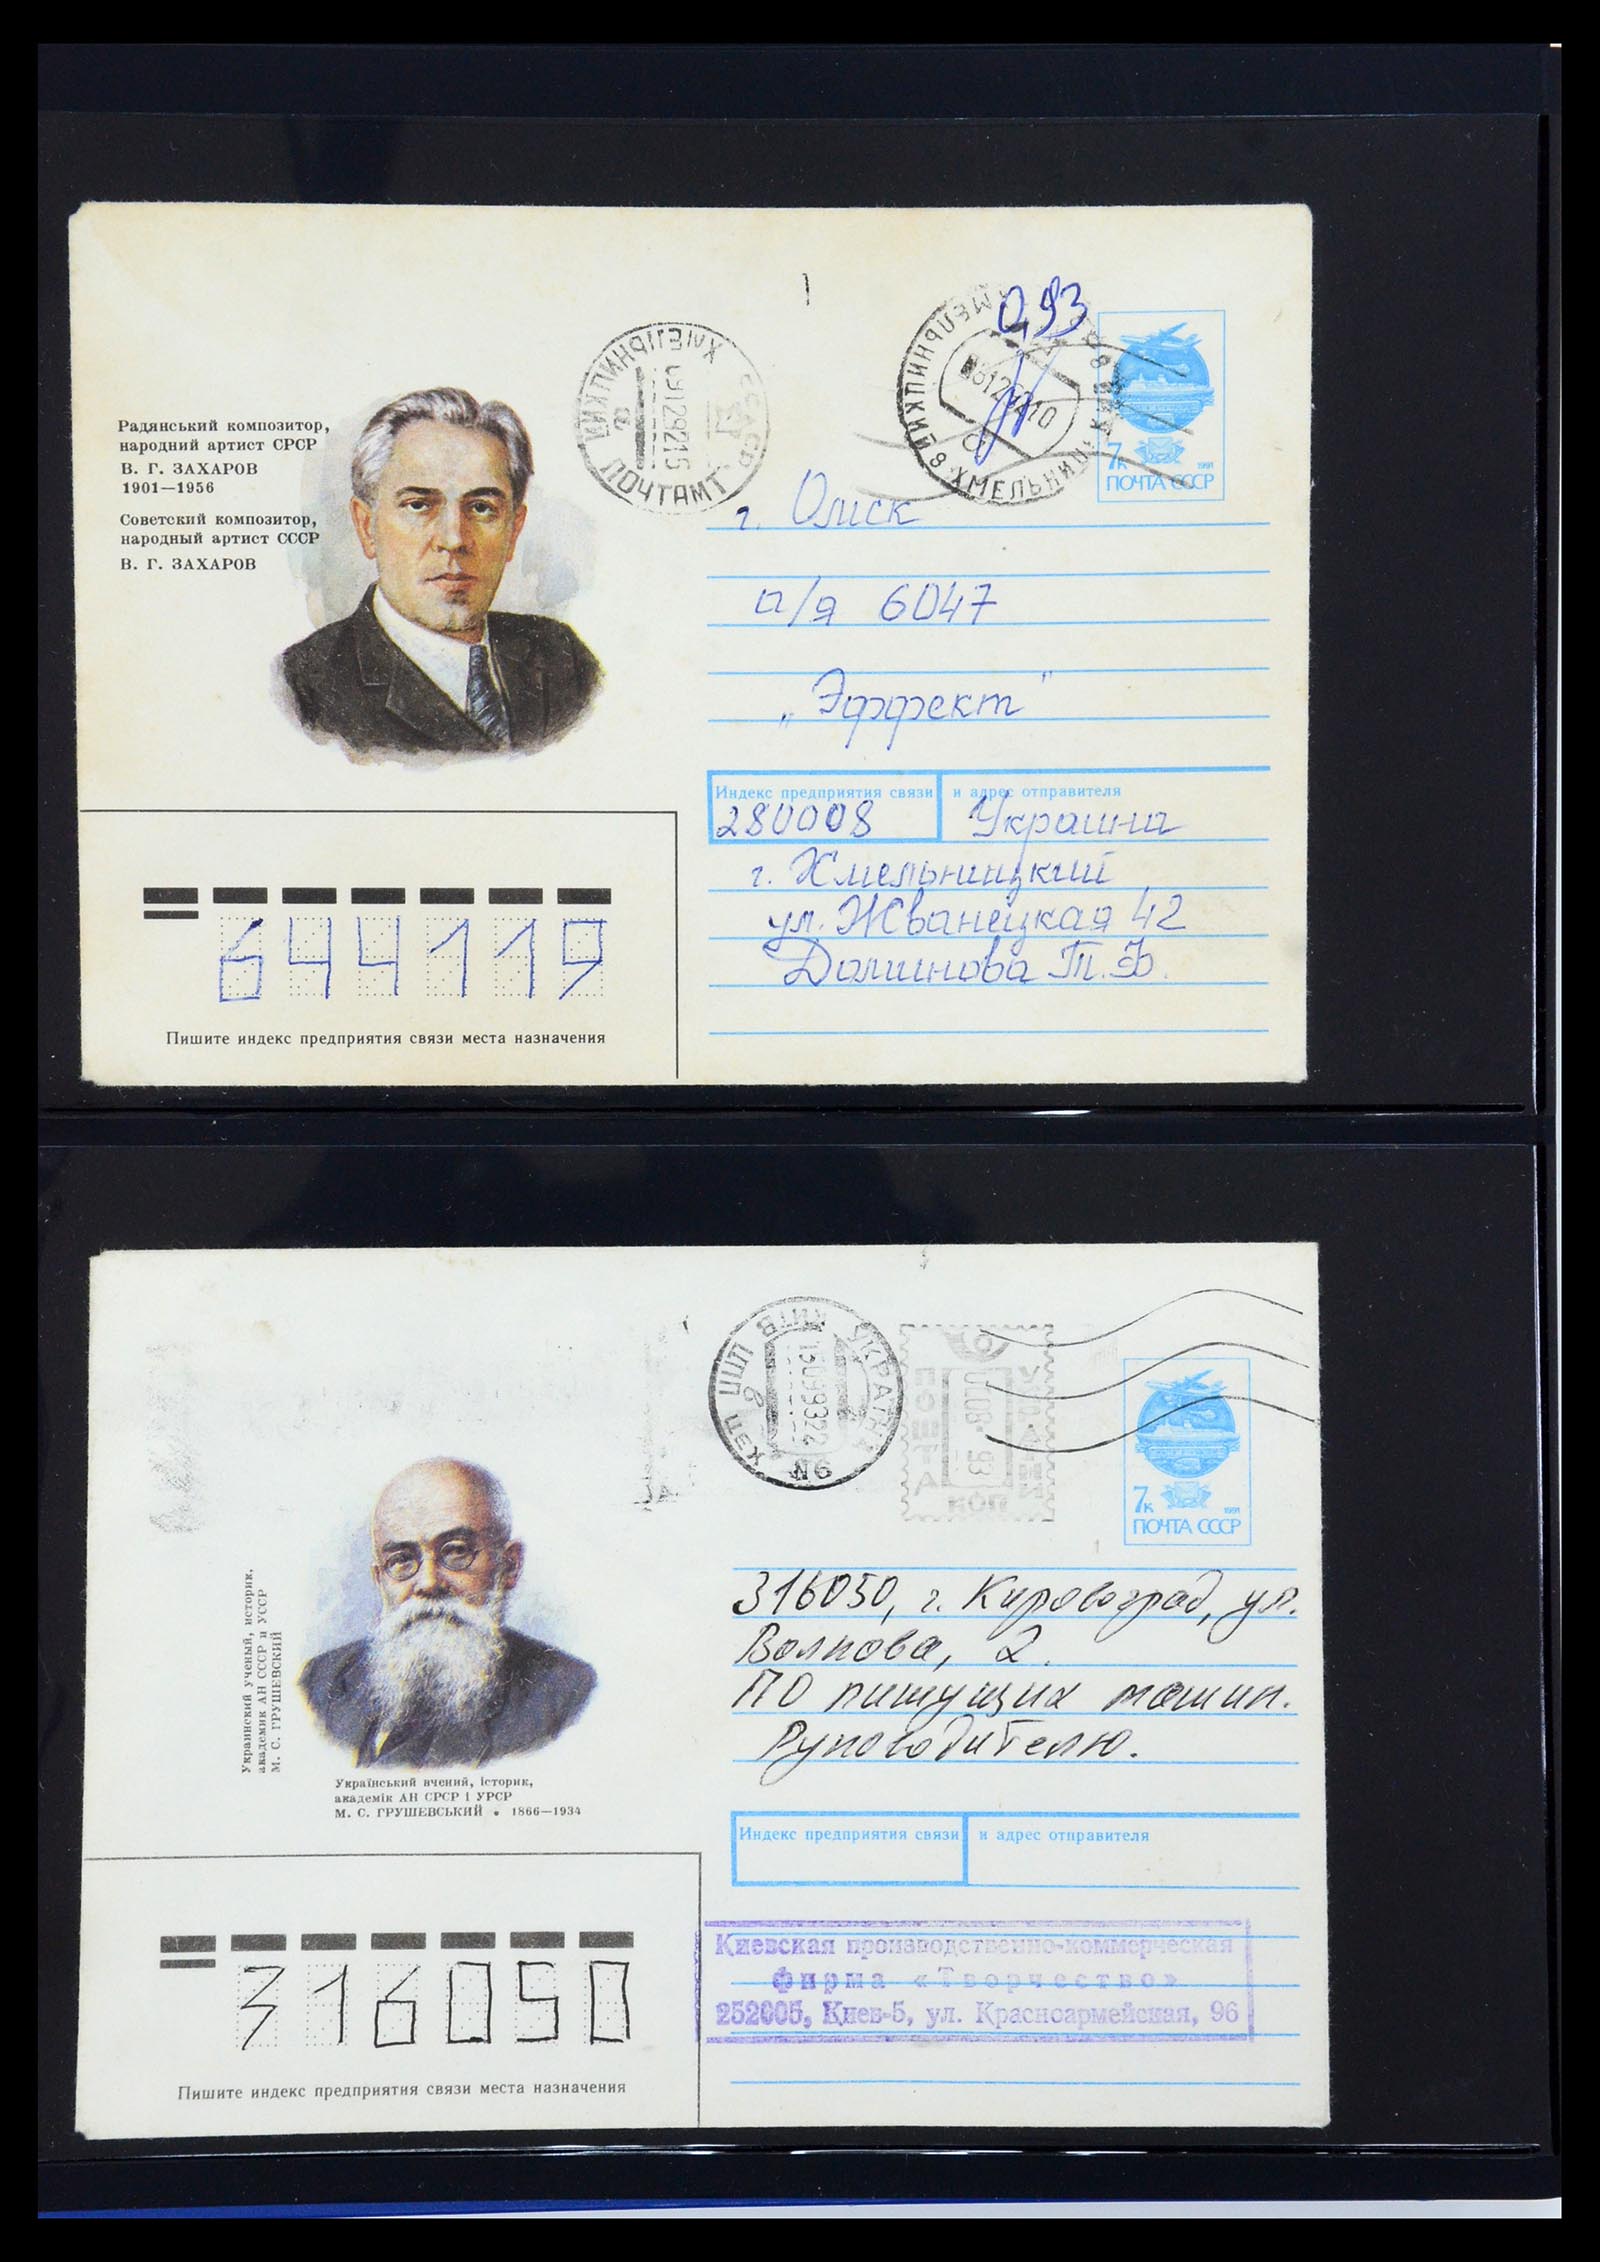 Радянський композитор,
народний артист СРСР
В. Г. ЗАХАРОВ
1901—1956
Советский композитор,
народный артист СССР
В. Г. ЗАХАРОВ
ПОЧТАМТ
0,93
ХМЕЛЬНИЦКИЙ 8
7к
1991
ПОЧТА СССР
г. Омск
п/я 6047
"Эффект"
Индекс предприятия связи и адрес отправителя
280008 Украина
г. Хмельницкий
ул. Жванецкая 42
Долинова Т. Ф.
644119
Пишите индекс предприятия связи места назначения
УКРАЇНА КИЇВ
N6
ПОШТА
КОП
7к
1991
ПОЧТА СССР
Украинский ученый, историк,
академик АН СССР и УССР
М. С. ГРУШЕВСКИЙ
Український вчений, історик,
академік АН СРСР і УРСР
М. С. ГРУШЕВСЬКИЙ • 1866—1934
316050, г. Кировоград, ул.
Волкова, 2.
ПО пишущих машин.
Руководителю.
Индекс предприятия связи и адрес отправителя
Киевская производственно-коммерческая
фирма «Творчество»
252005, Киев-5, ул. Красноармейская, 96
316050
Пишите индекс предприятия связи места назначения